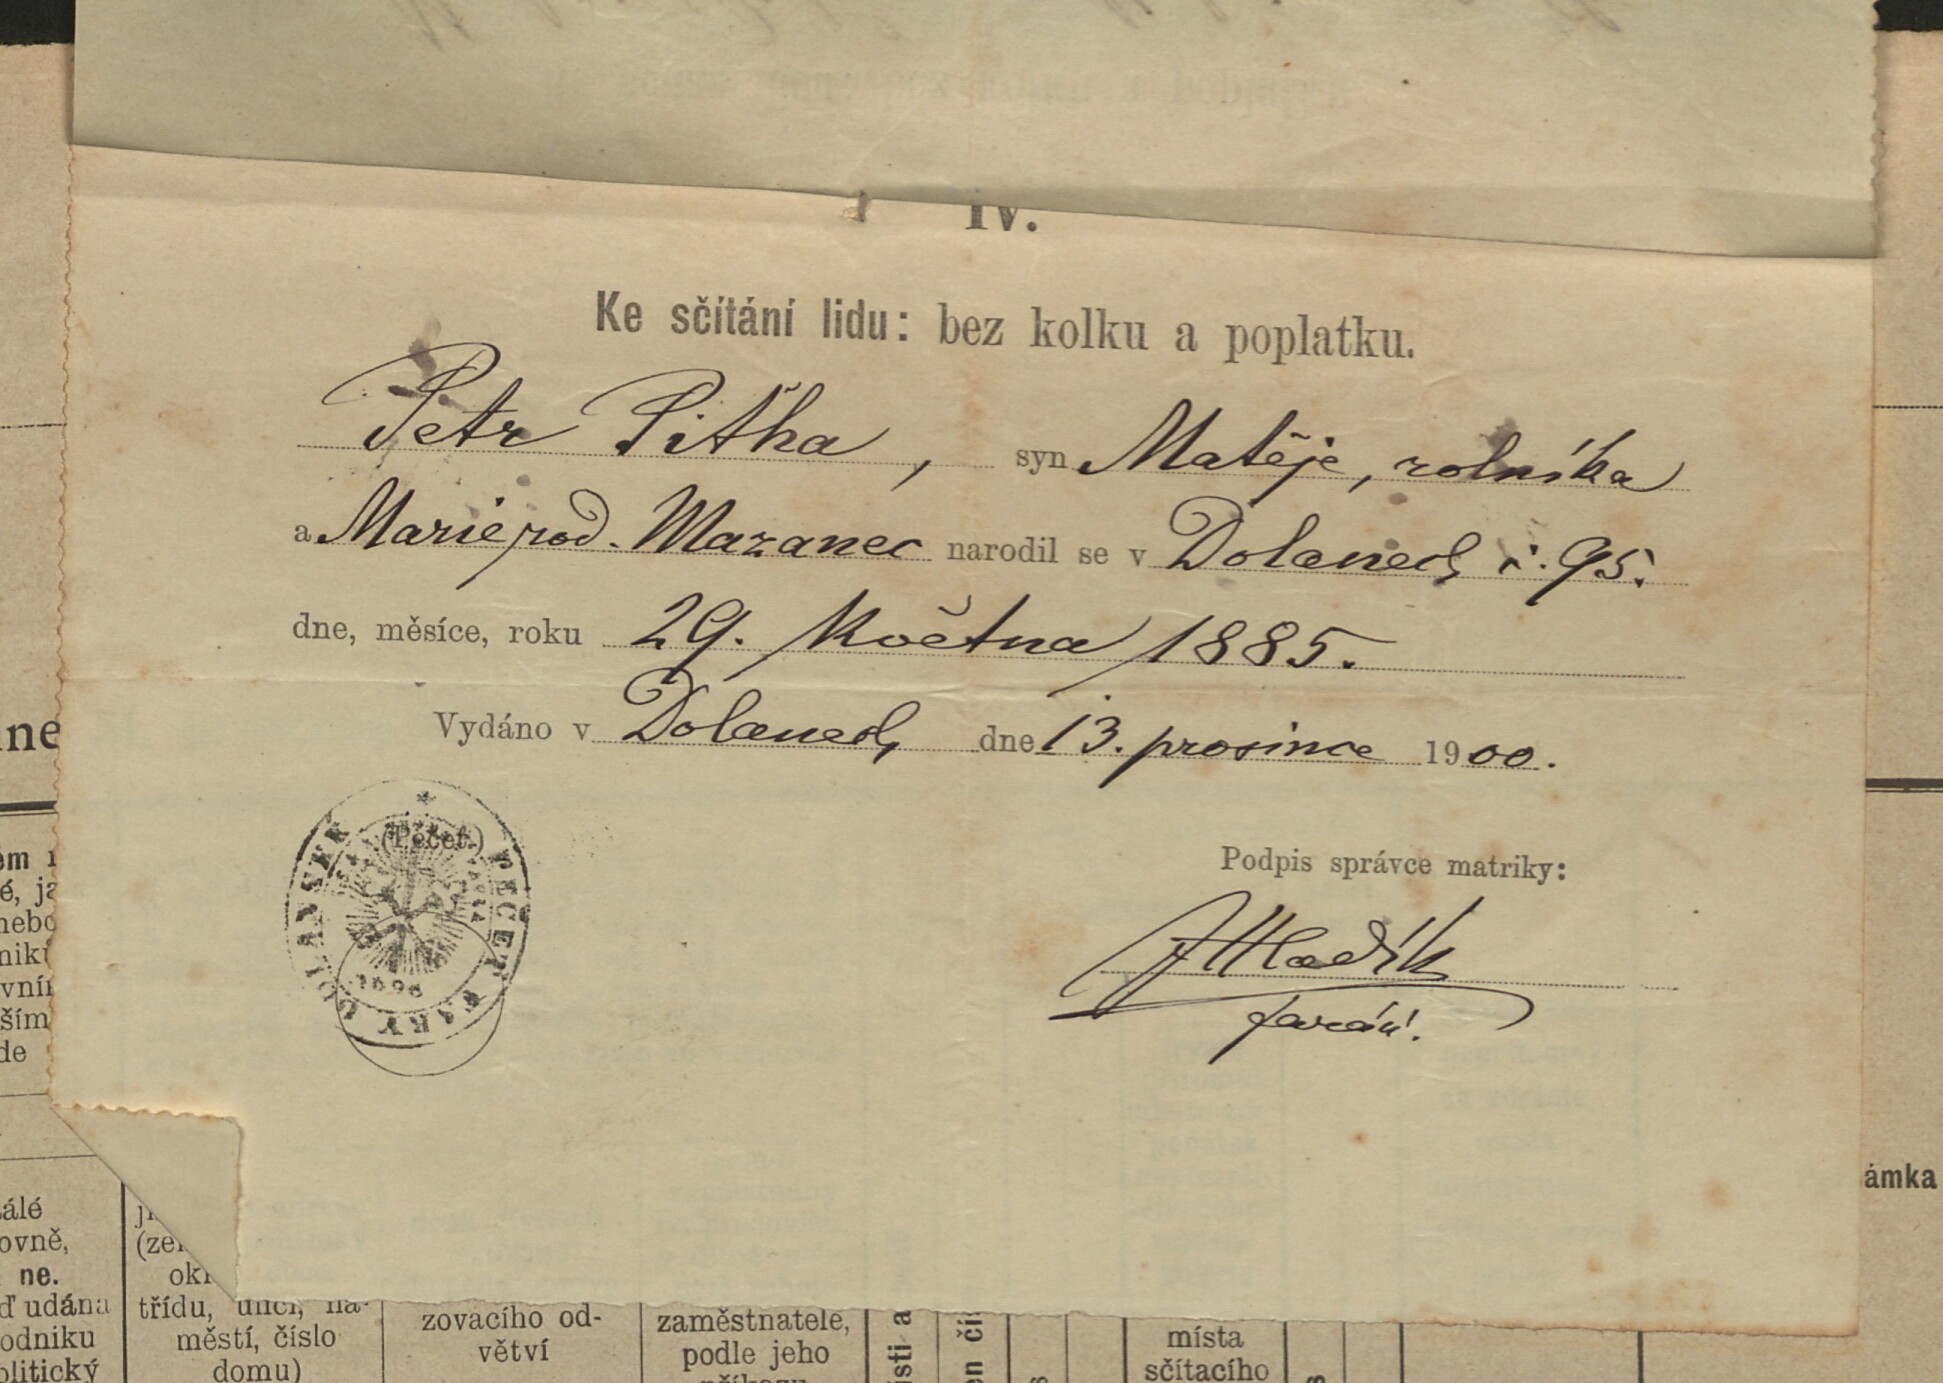 IV.
Ke sčítání lidu: bez kolku a poplatku.
Petr Piťha, syn Matěje, rolníka
a Marie rod. Mazanec narodil se v Dolanech č. 95.
dne, měsíce, roku 29. května 1885.
Vydáno v Dolanech dne 13. prosince 1900.
(Pečeť.)
PEČEŤ FARY DOLANSKÉ
Podpis správce matriky:
Hladík
farář.
ne
ém
é, ja
nebo
vní
ším
de
álé
ovně,
ne.
ď udána
odniku
olitický
(zem
okr
třídu, ulici, ná-
městí, číslo
domu)
zovacího od-
větví
zaměstnatele,
podle jeho
místa
sčítacího
ámka